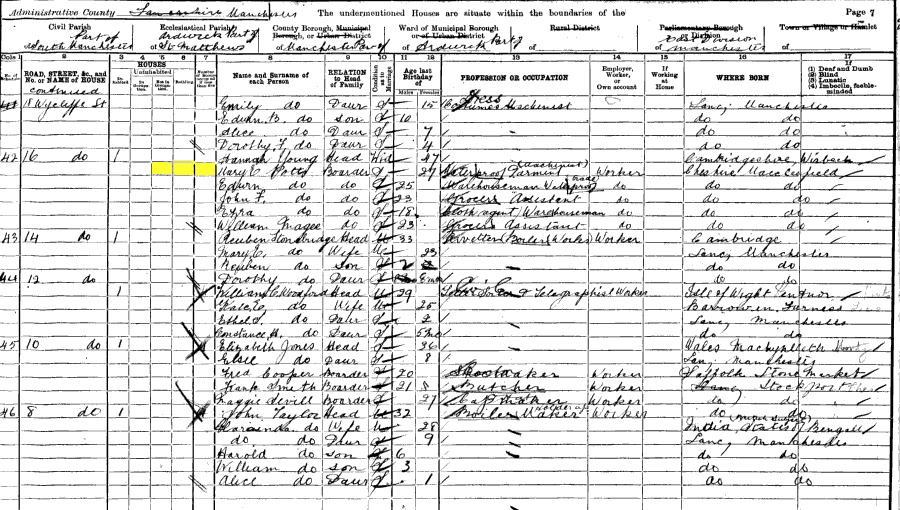 Administrative County Lancashire Manchester The undermentioned Houses are situate within the boundaries of the Page 7
Civil Parish Ecclesiastical Parish County Borough, Municipal Borough, or Urban District Ward of Municipal Borough or Urban District Rural District Parliamentary Borough or Division Town or Village or Hamlet
Part of of South Manchester Ardwick Part of of St Matthews of Manchester Part of of Ardwick Part of of of East Division Manchester of
Cols 1 2 3 4 5 6 7 8 9 10 11 12 13 14 15 16 17
ROAD, STREET, &c., and No. or NAME of HOUSE HOUSES Uninhabited Name and Surname of each Person RELATION to Head of Family Condition as to Marriage Age last Birthday of Males Females PROFESSION OR OCCUPATION Employer, Worker, or Own account If Working at Home WHERE BORN (1) Deaf and Dumb (2) Blind (3) Lunatic (4) Imbecile, feeble-minded
continued
18 Wycliffe St Emily do Daur S 15 Dress Costumes Machinist Lanc, Manchester
Edwin B. do son S 10 do do
Alice do Daur S 7 do do
Dorothy F. do Daur S 4 do do
42 16 do 1 Hannah Young Head Wid 47 Cambridgeshire, Wisbech
Mary C. Potts Boarder S 27 Waterproof Garment (Machinist) Worker Cheshire Macclesfield
Edwin do do S 25 Warehouseman Waterproof trade do do do
John F. do do S 23 Grocers Assistant do do do
Ezra do do S 18 Cloth agent Warehouseman do do do
William Magee do S 23 Grocers Assistant do do do
43 14 do 1 Reuben Stonebridge Head M 33 Rivetter (Boiler Works) Worker Cambridge
Mary C. do Wife M 33 Lanc, Manchester
Reuben do son S 2 do do
Dorothy do Daur S do do
44 12 do 1 William C. Woodford Head M 29 Telegraphist Worker Isle of Wight Ventnor
do Wife M 25 Barrow in Furness
Ethel do Daur S 2 Lanc Manchester
Constance A. do Daur S 5mo do do
45 10 do 1 Elizabeth Jones Head 26 Wales Machynlleth
Elsie do Daur S 8 Lanc Manchester
Fred Cooper Boarder S 20 Worker Suffolk Stowmarket
Frank Smith Boarder S 21 Butcher Worker Stockport Ches
Maggie Devill Boarder S 27 Cap Maker Worker do do
46 8 do 1 John Taylor Head M 32 Boiler Maker Holder up Worker do do
do Wife M 28 India (British Subject) Bengall
do. do Daur S 9 Lancs Manchester
Harold do son S 6 do do
William do son S 3 do do
Alice do Daur S 1 do do